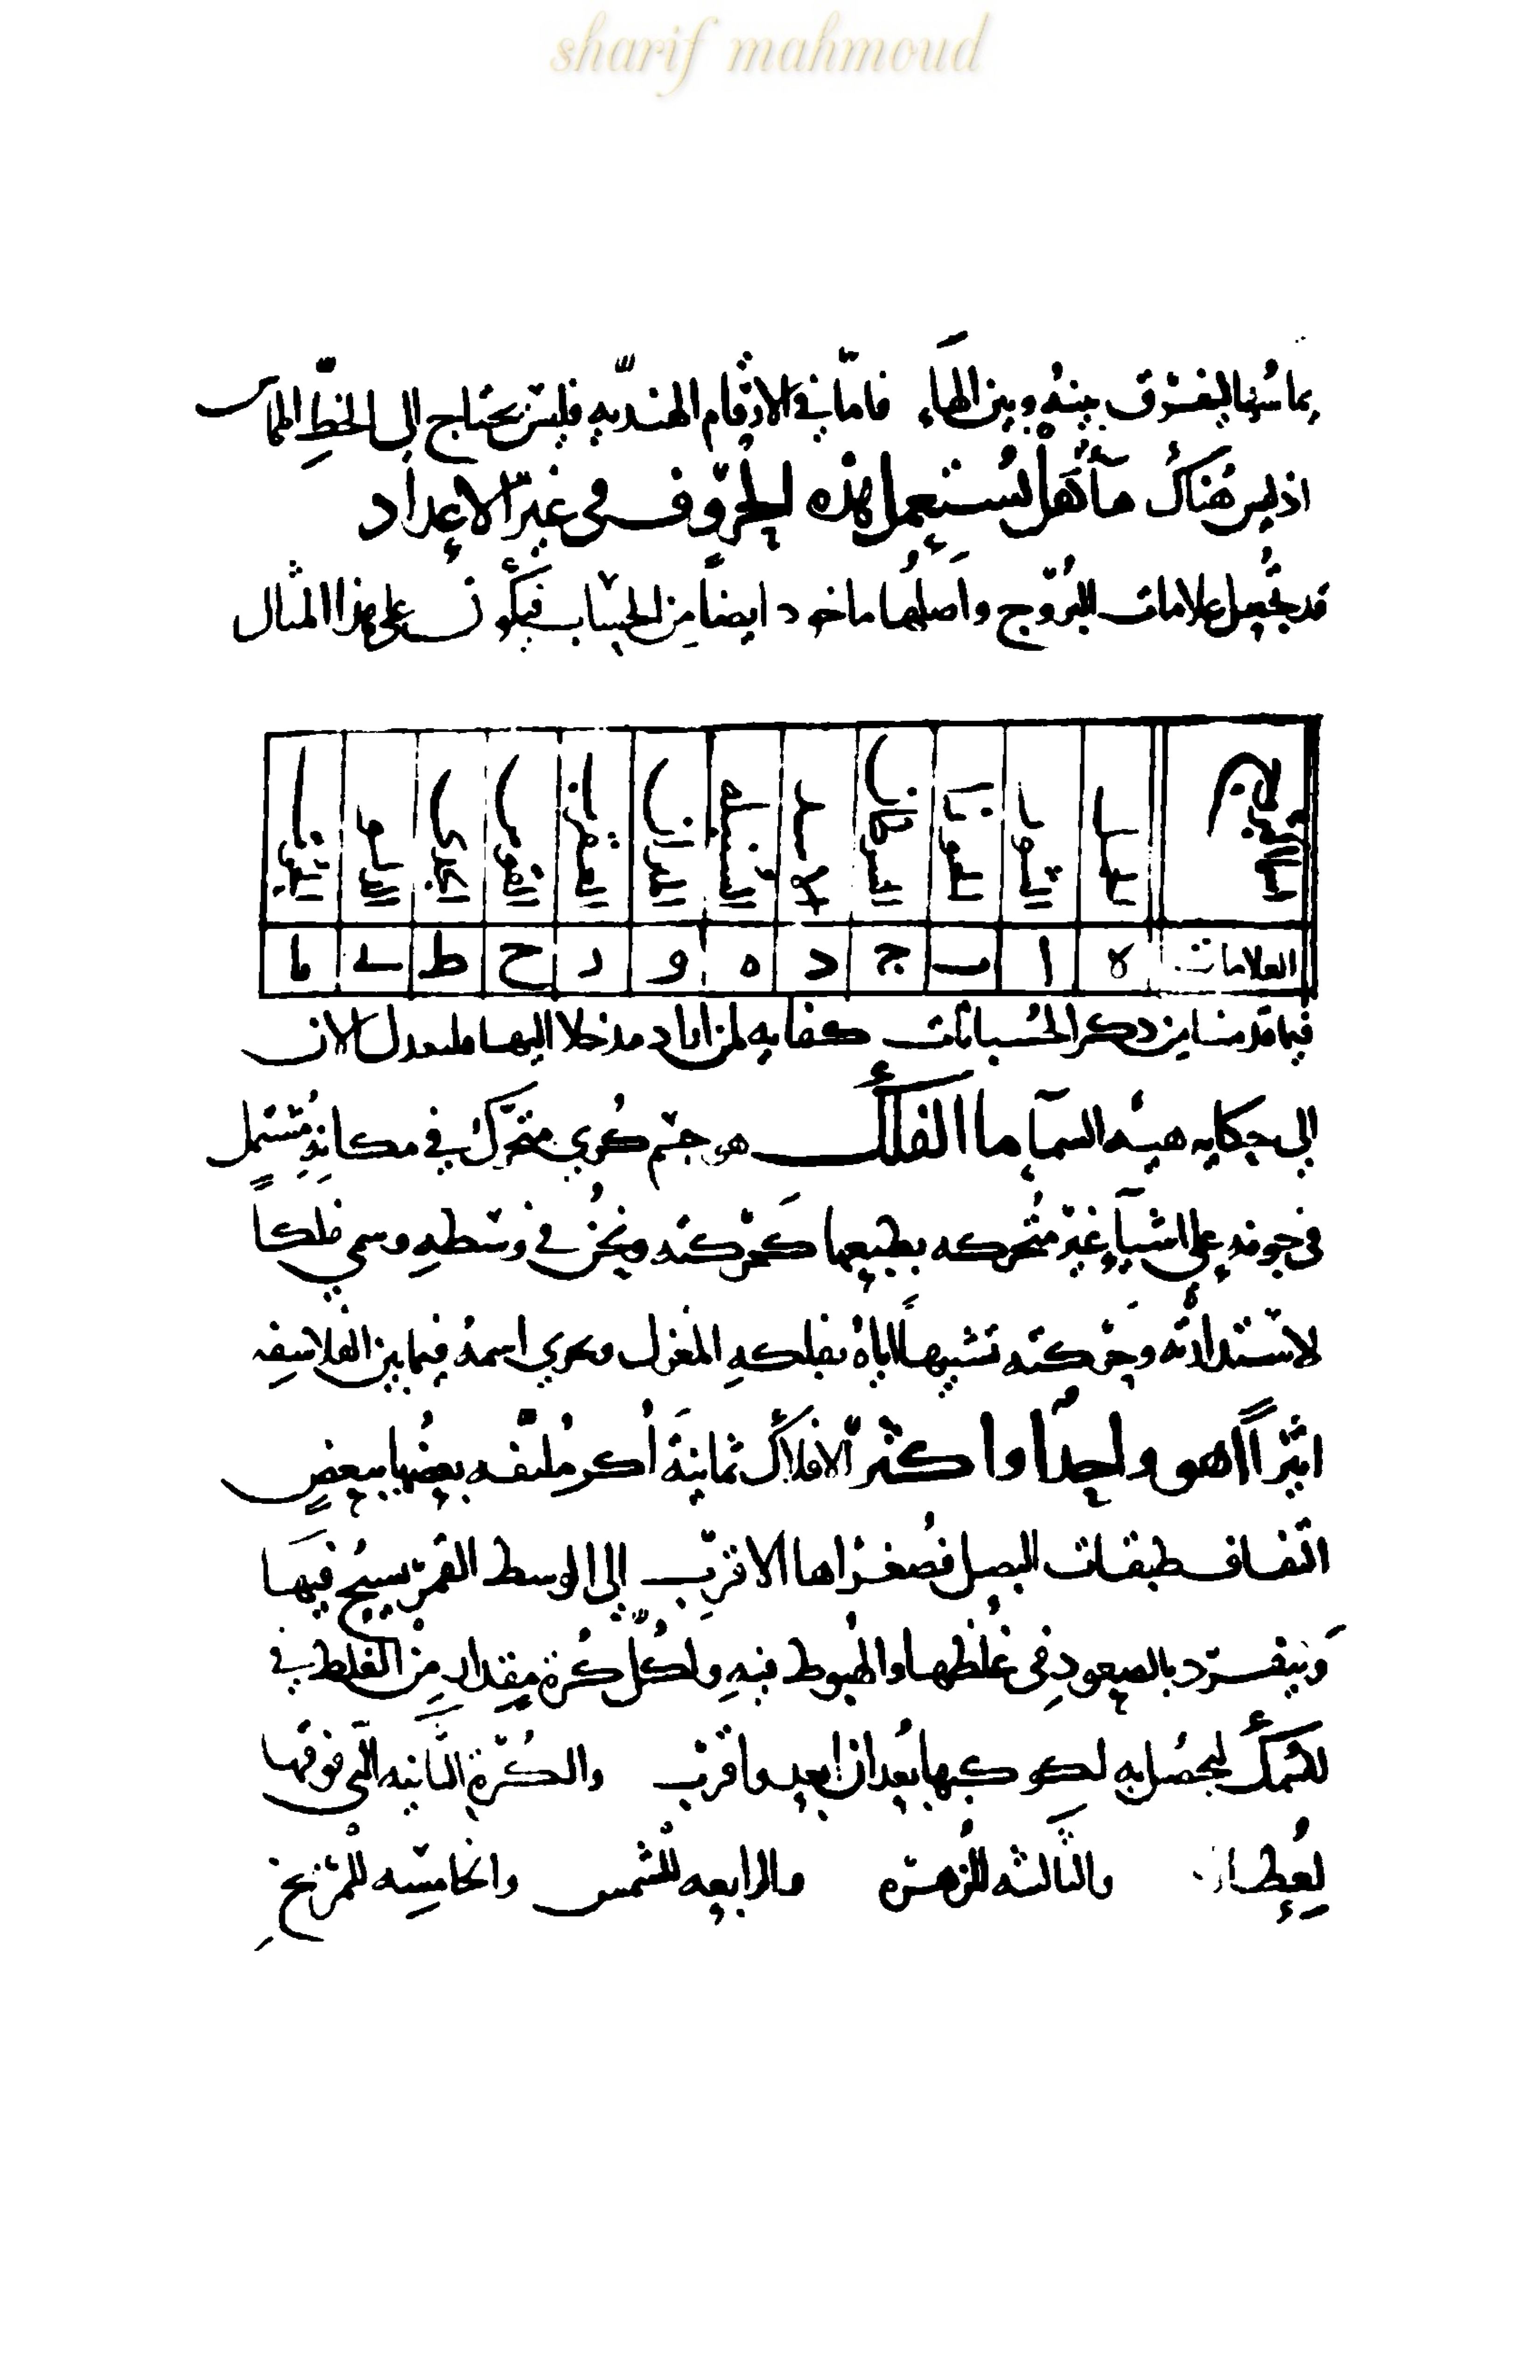 sharif mahmoud
يماسها ليفرق بينه وبين الهاء فاما في الارقام الهنديه فليس يحتاج الى الخط المماس
اذ ليس هناك هاء هل تستعمل هذه الحروف في غير الاعداد
قد تجعل علامات البروج واصلها ماخوذ ايضا من الحساب فيكون على هذا المثال
البروج الحمل الثور الجوزا السرطان الاسد السنبله الميزان العقرب القوس الجدى الدلو الحوت
العلامات ه ا ب ج د ه و ز ح ط ى يا
فيما قدمنا من ذكر الحسبانات كفايه لمن اراد مدخلا اليها فلنعدل الان
الى حكايه هيئه السمآ ما الفلك هو جسم كري متحرك في مكانه مشتمل
في جوفه على اشيآ غير متحركه بطبعها كحركته ونحن في وسطه وسمي فلكا
لاستدارته وحركته تشبيها اياه بفلكه المغزل ويجري اسمه فيما بين الفلاسفه
اثيرا اهو واحد او اكثر الافلاك ثمانية اكر ملتفه بعضها ببعض
التفاف طبقات البصل فصغراها الاقرب الى الوسط القمر يسبح فيها
وينفرد بالصعود في غلظها والهبوط فيه ولكل كرة مقدار من الغلظ في
السمك ليحصل به لكوكبها بعدان ابعد واقرب والكرة الثانيه التي فوقها
لعطارد والثالثه للزهره والرابعه للشمس والخامسه للمريخ